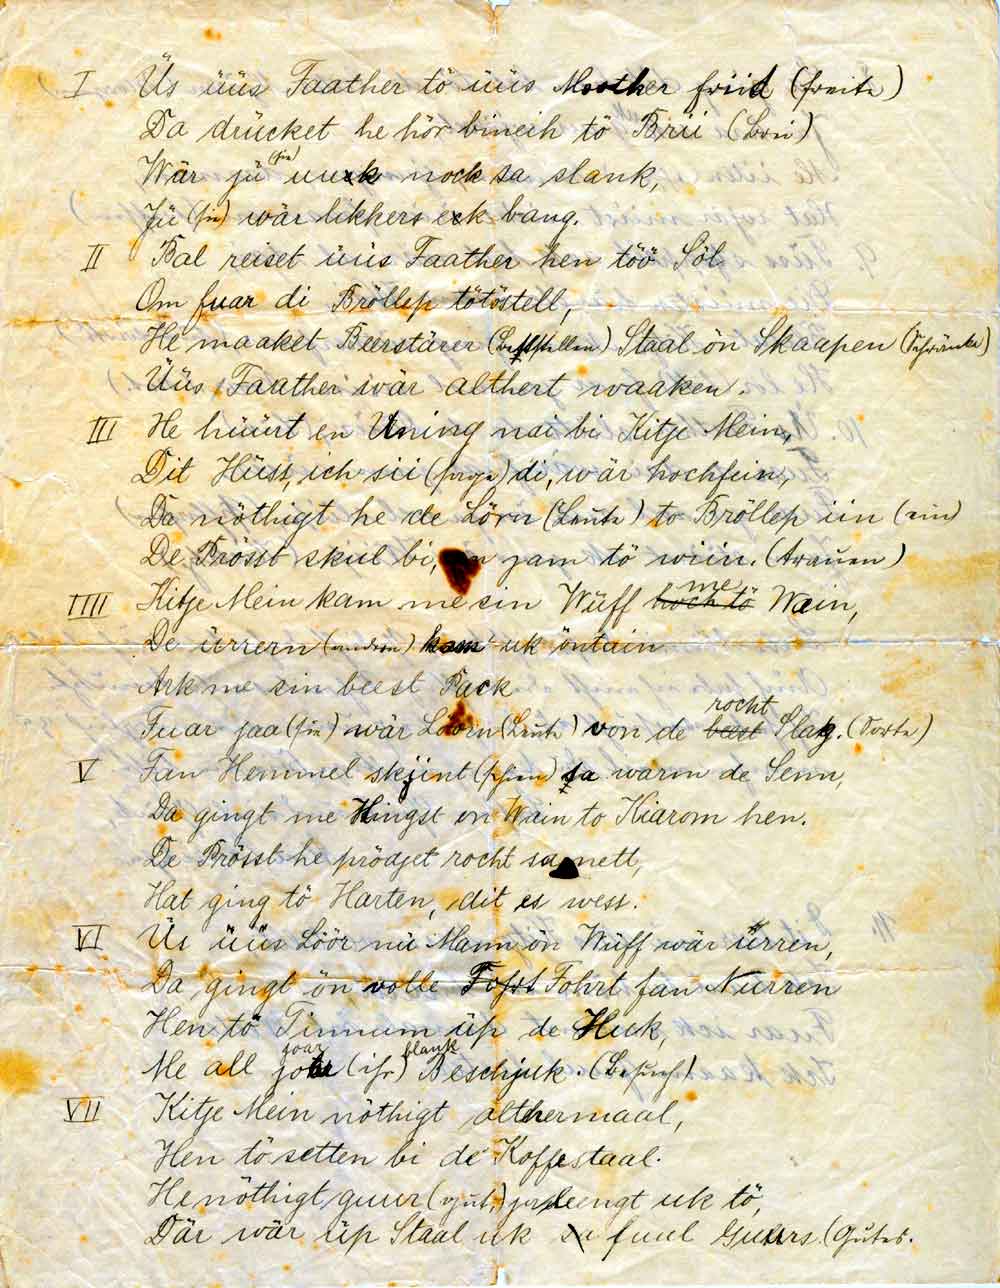 I Üs üüs Faather tö üüs Moother friid (freite)
Da drücket he hör bineih tö Brii (Brei)
Wär jü (sie) uuk nock sa slank,
Jü (sie) wär likkers ek bang.
II Bal reiset üüs Faather hen töö Söl
Om fuar di Bröllep tötöstell,
He maaket Beerstärer (Bettstellen) Staal ön Skaapen (Schränke)
Üüs Faather wär althert waaken.
III He hüürt en Uning nai bi Kitje Mein,
Dit Hüss, ich sii (sage) di, wär hochfein,
Da nöthigt he de Lörn (Leute) to Bröllep iin (ein)
De Prösst skul bi, jam tö wiin. (trauen)
IIII Kitje Mein kam me sin Wüff hoch tö me Wain,
De ürrern (andren) kam uk öntain
Ark me sin beest Pack
Fuar jaa (sie) wär Löörn (Leute) von de beest rocht Slag. (Sorte)
V Fan Hemmel skjint (schien) sa warm de Senn,
Da gingt me Hingst en Wain to Kiarom hen.
De Prösst he prödjet rocht sa nett,
Hat ging tö Harten, dit es wess.
VI Üs üüs Löör nü Mann ön Wüff wär ürren,
Da gingt ön volle Fohrt fan Nurren
Hen tö Tinnum üp de Huk,
Me all joar (ihr) blank Beschjuk. (Besuch)
VII Kitje Mein nöthigt althermaal,
Hen tö setten bi de Koffestaal.
He nöthigt guur (gut) leengt uk tö,
Där wär üp Staal uk fuul Guurs. (Gutes.